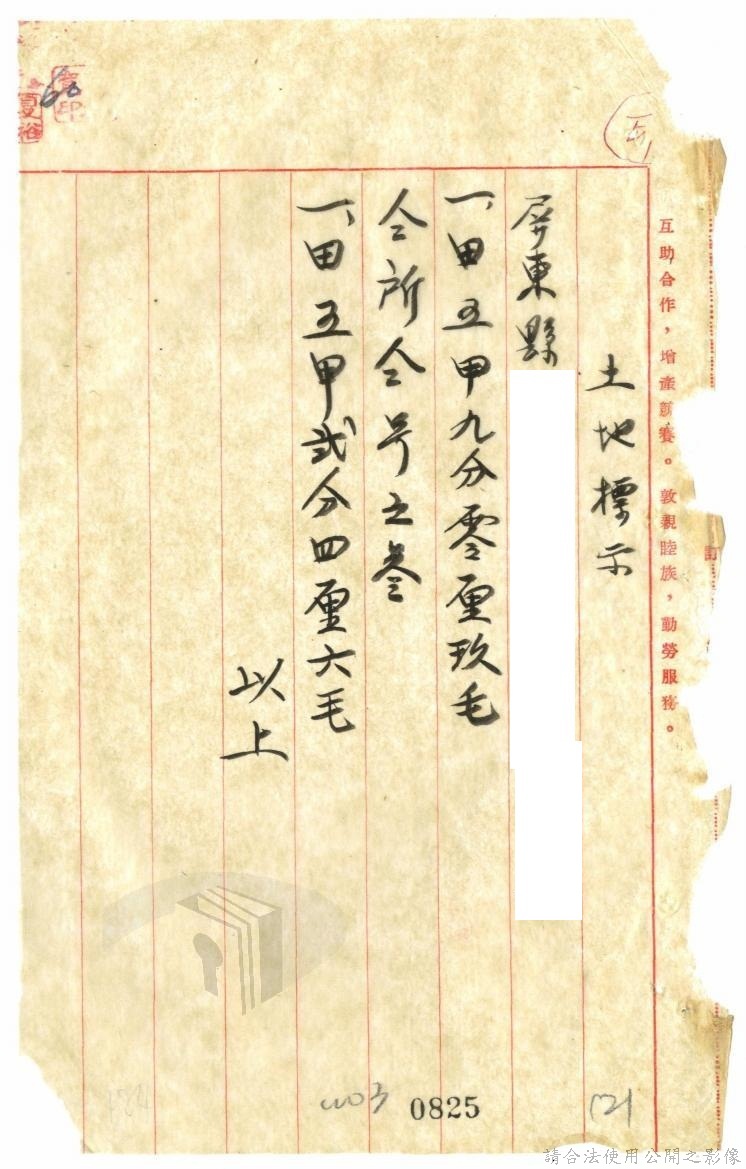 互助合作，增產競賽。敦親睦族，勤勞服務。
土地標示
屏東縣
一、田五甲九分零厘玖毛
仝所仝号之叁
一、田五甲弐分四厘六毛
以上
0825
121
請合法使用公開之影像